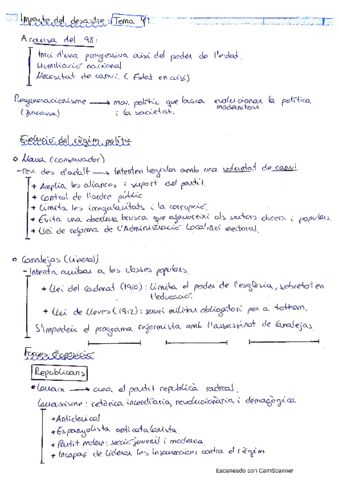 Impacte del desastre: Tema 4:
A causa del 98:
Inici d'una progressiva crisi del poder de l'estat.
Humiliació nacional
Necessitat de canvi. (Estat en crisi)
Regeneracionisme → mov. polític que busca evolucionar la política
(fracassa) i la societat. modernitzar
Evolució del règim polític
Maura (conservador)
-rev. des d'adalt → Intenten legislar amb una voluntat de canvi.
+ Amplia les aliances i suport del partit.
+ Control de l'ordre públic
+ Limita les irregularitats i la corrupció.
+ Evita una obertura brusca que afavoreixi als sectors obrers i populars.
+ Llei de reforma de l'Administració Local i electoral.
Canalejas (Liberal)
- Intenta arribar a les classes populars.
+ Llei del Cadenat (1910): Limita el poder de l'església, sobretot en
l'educació.
+ Llei de Lleves (1912): servei militar obligatori per a tothom.
S'impedeix el programa reformista amb l'assassinat de Canalejas.
Forces d'oposició
Republicans
Lerroux → crea el partit republicà radical.
Lerrouxisme: retòrica incendiària, revolucionària i demagògica
+ Anticlerical
+ Espanyolista anticatalanista.
+ Partit modern: secció juvenil i moderna.
+ Incapaç de liderar les insurreccions contra el règim
Escaneado con CamScanner